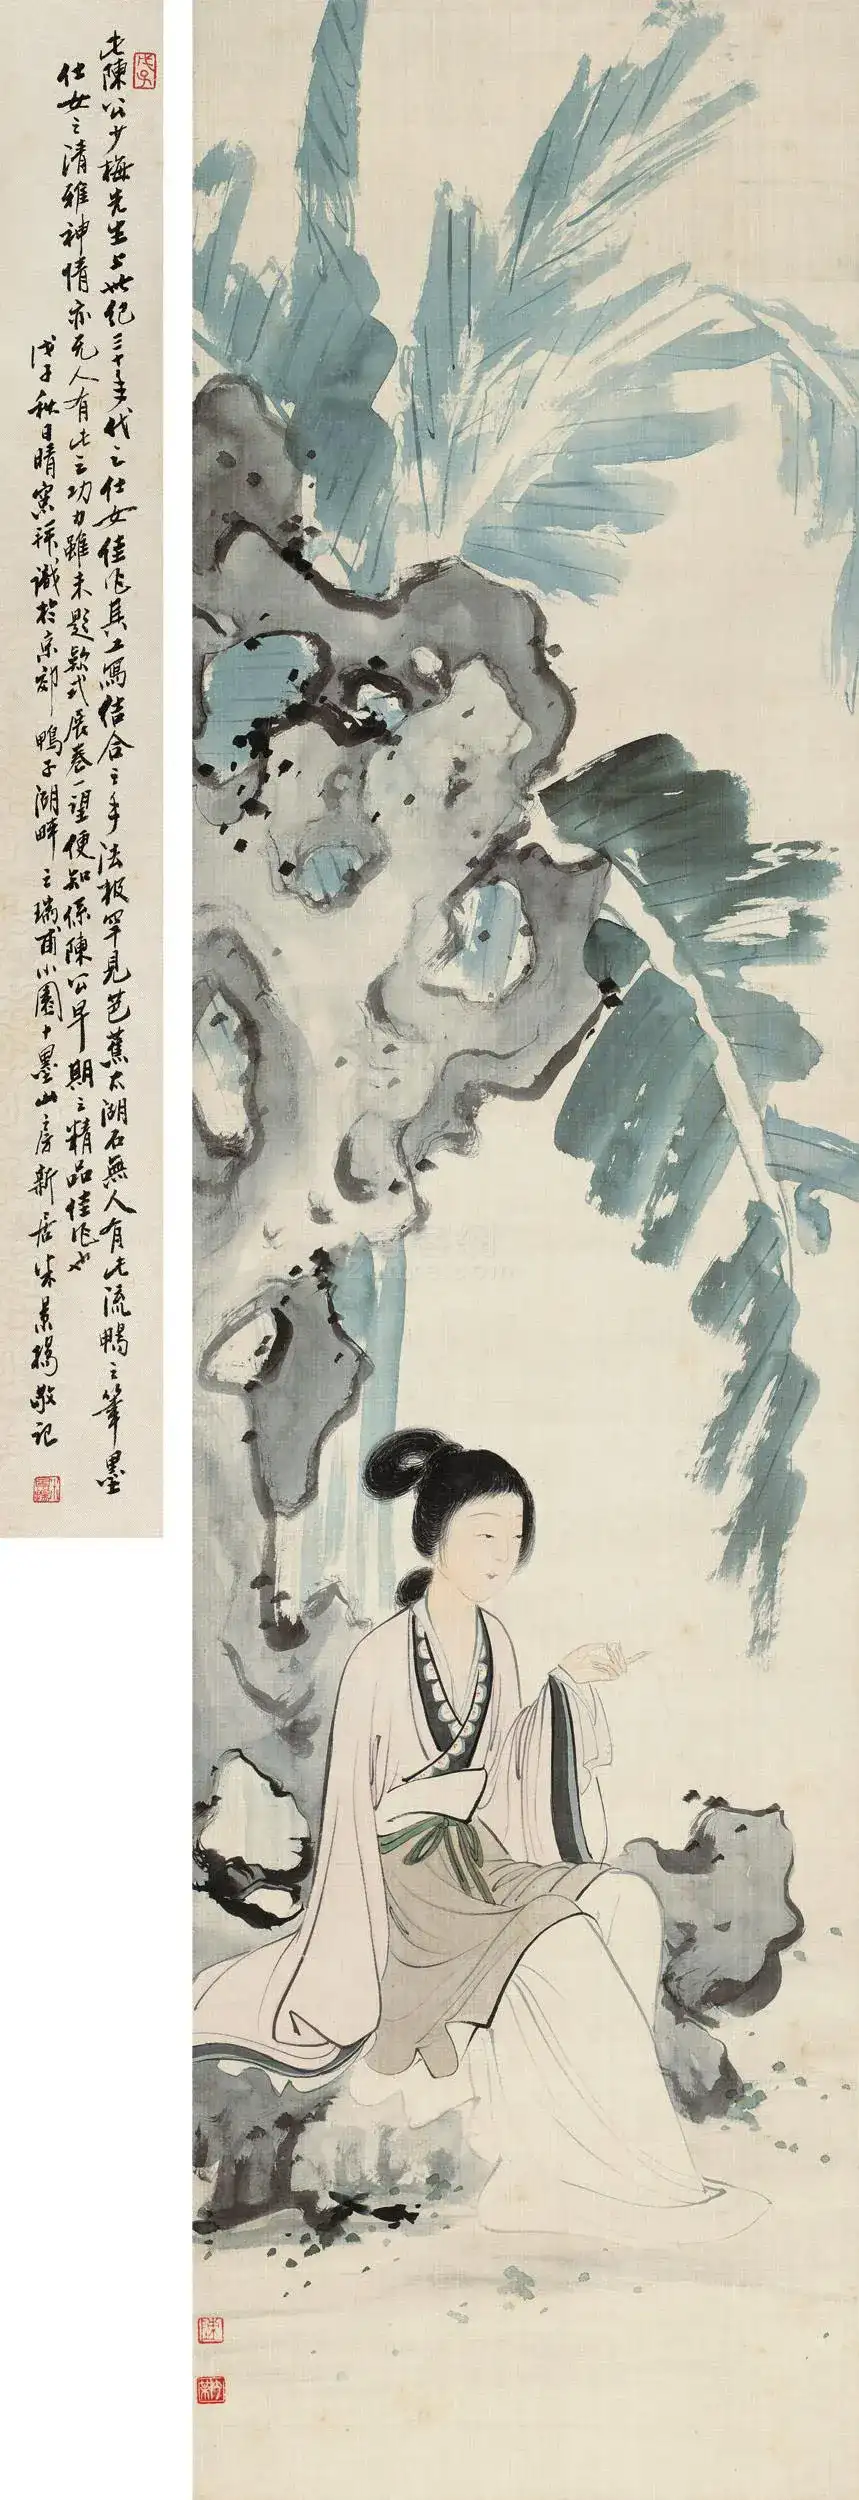 此陳公少梅先生上世纪三十年代之仕女佳作其工寫结合之手法极罕見芭蕉太湖石無人有此流暢之筆墨
仕女之清雅神情亦无人有此之功力雖未題款式展卷一望便知係陳公早期之精品佳作也
戊子秋日晴窗拜識於京郊鴨子湖畔之瑞甫小園十墨山房新居朱景揚敬记
戊子